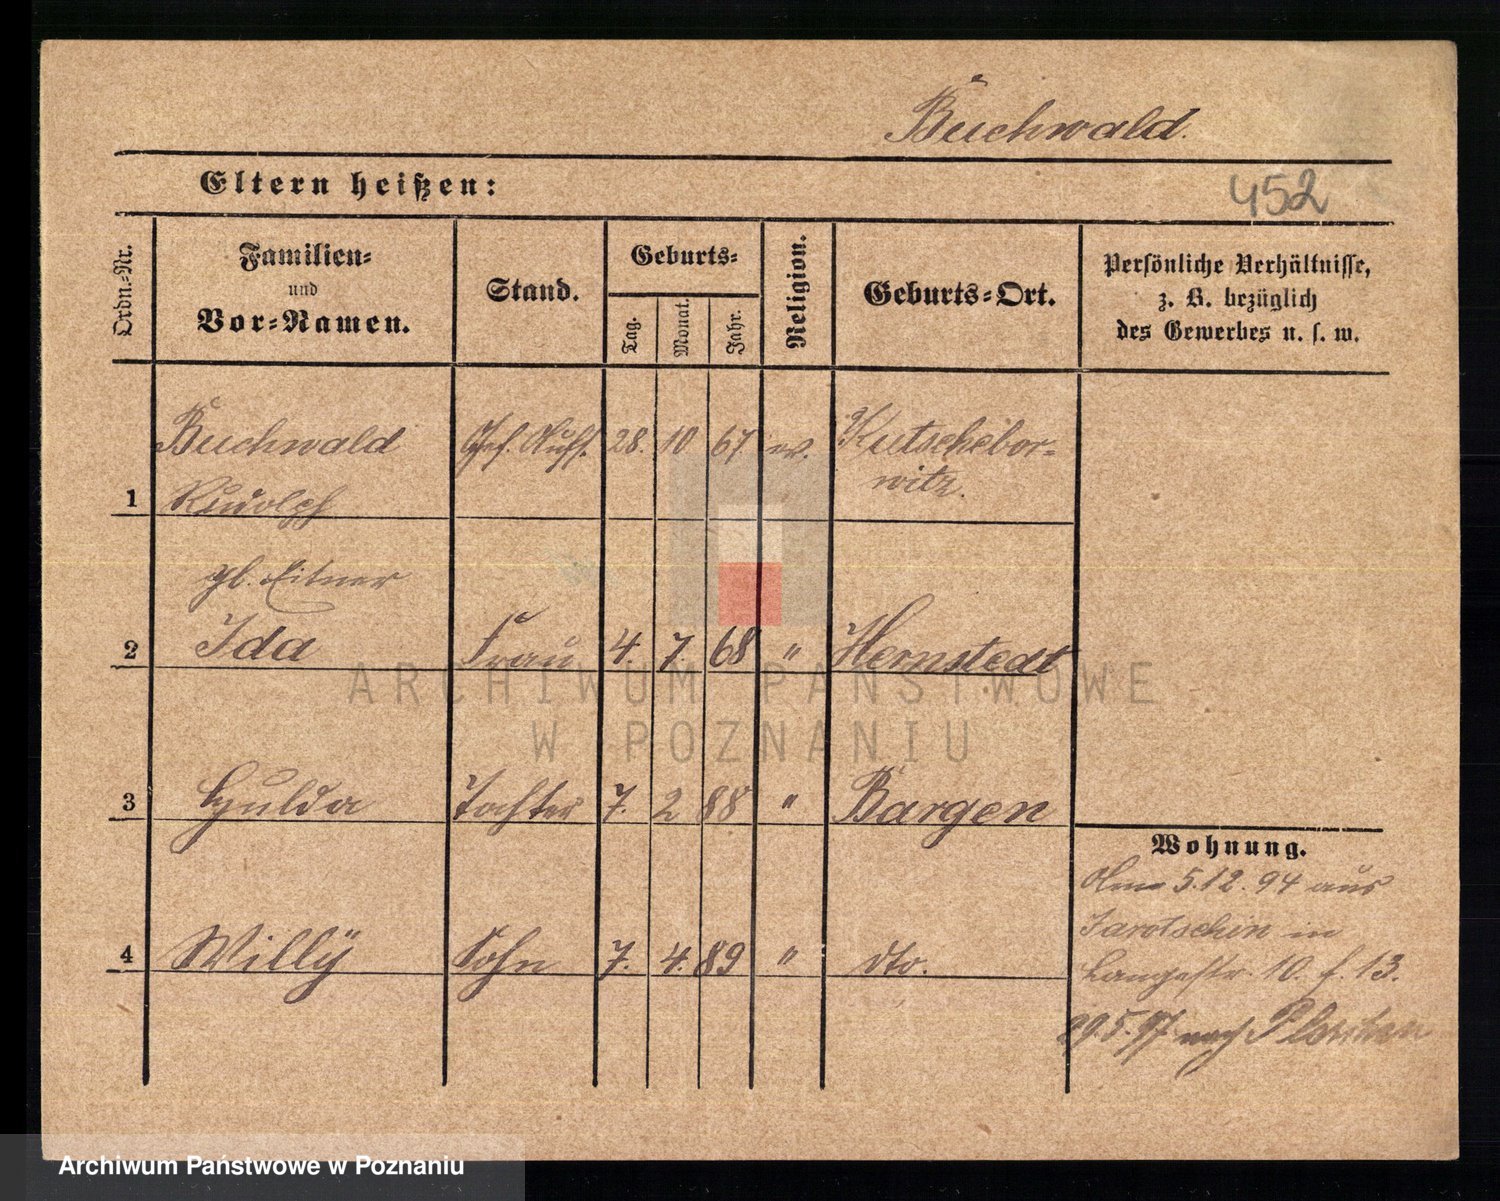 Buchwald.
Eltern heißen:
452
Ordn.-Nr.
Familien-
und
Vor-Namen.
Stand.
Geburts-
Tag.
Monat.
Jahr.
Religion.
Geburts-Ort.
Persönliche Verhältnisse,
z. B. bezüglich
des Gewerbes u. s. w.
Buchwald 28. 10 67 ev. Kutschebor-
witz.
1 Rudolph
gb. Eitner
2 Ida Frau 4. 7. 68 " Herrnstedt
3 Hulda Tochter 7. 2 88 " Bargen
4 Willÿ Sohn 7. 4. 89 " dto.
Wohnung.
5.12.94 aus
Jarotschin in
Langestr. 10. f. 13.
29.5.97 nach Pleschen
ARCHIWUM PAŃSTWOWE
W POZNANIU
Archiwum Państwowe w Poznaniu